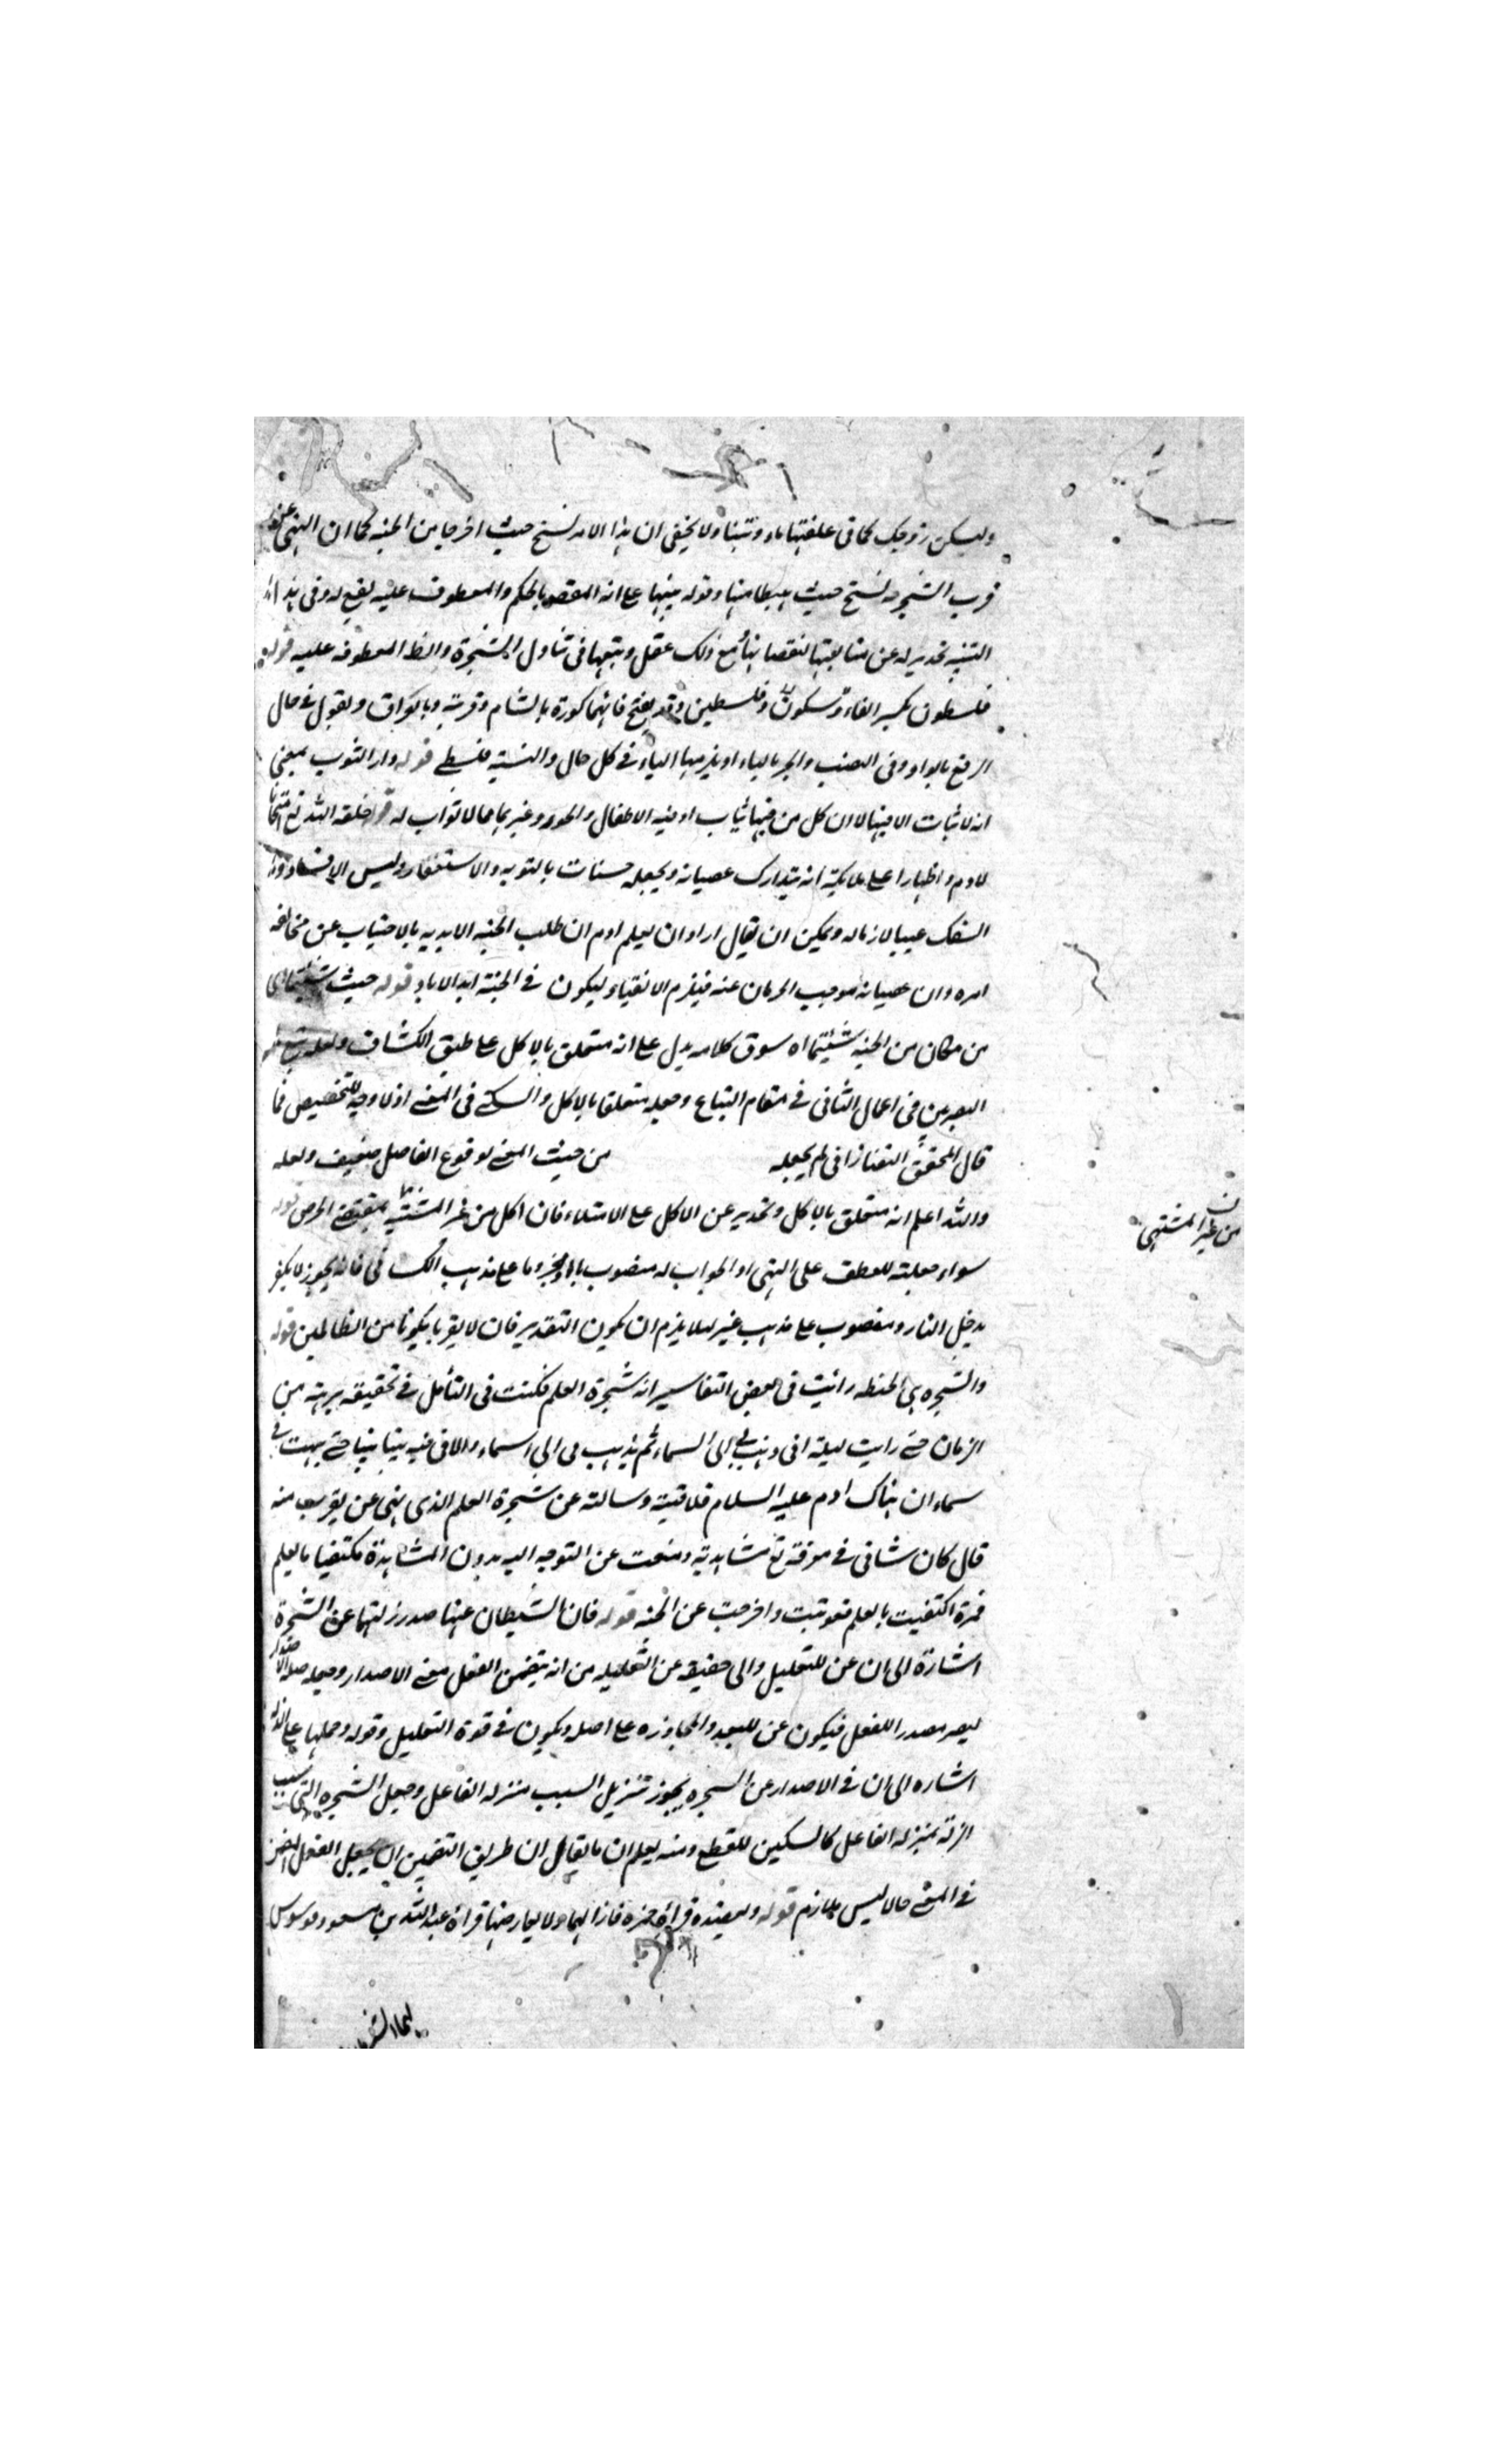 وليسكن زوجك كما في علفتها ماء وتبنا ولا يخفى ان هذا الامر نسخ حيث اخرجا من الجنه كما ان النهى عن
قرب الشجره نسخ حيث اهبطا منها وقوله منبها على انه المقصود بالحكم والمعطوف عليه تبع له وفي هذا
التنبيه تحذير له عن متابعتها لنقصانها مع ذلك عقل وتبعها في تناول الشجرة والظ المعطوف عليه قوله
فلسطون بكسر الفاء وسكون وفلسطين وقد يفتح فائهما كورة بالشام وقرية وبالعراق وتقول في حال
الرفع بالواو وفي النصب والجر بالياء او يلزمها الياء في كل حال والنسبة فلسطي قوله دار الثوب بمعنى
انه لا ثبات الا فيها لا ان كل من فيها يثاب اد فيه الاطفال والحور وغيرهما مما لا ثواب له خلقه الله تع امتحانا
لادم واظهارا على ملائكته انه يتدارك عصيانه ويجعله حسنات بالتوبه والاستغفار وليس الافساد
السفك عيبا لازما له ويمكن ان يقال اراد ان يعلم ادم ان طلب الجنه الابديه بالاجتناب عن مخالفه
امره وان عصيانه موجب الحرمان عنه فيلزم الاتقياء ليكون في الجنة ابد الاباد قوله حيث شئتما اى
من مكان من الجنه شئتما اه سوق كلامه يدل على انه متعلق بالاكل على طبق الكشاف ولعله
البصريين في اعمال الثاني في مقام التنازع وجعله متعلقا بالاكل والسكنى في المعنى اذ لا وجه للتخصيص فما
قال المحقق التفتازاني لم يجعله من حيث المعنى لوقوع الفاصل ضعيف ولعله
والله اعلم انه متعلق بالاكل وتحذير عن الاكل على الامتلاء فان اكل من غير المشتهى بمقتضى الحرص قوله
من غير المشتهى
سواء جعلته للعطف على النهى او الجواب له منصوب مجزوما على مذهب الكسائي فانه يجوز لا تكفر
تدخل النار ومنصوب على مذهب غيره لئلا يلزم ان يكون التقدير فان لا تقربا تكونا من الظالمين قوله
والشجره هى الحنطه رائيت في بعض التفاسير انه شجرة العلم فكنت في التأمل في تحقيقه برهة من
الزمان حتى رايت ليلة انى ذهب بي الى السماء ثم يذهب بى الى السماء والاقى فيه نبيا نبيا حتى بهت في
سماء ان هناك ادم عليه السلام فلاقيته وسالته عن شجرة العلم الذى نهى عن يقرب منه
قال كان شانى في معرفته تع مشاهدته ومنعت عن التوجه اليه بدون المشاهدة مكتفيا بالعلم
فمرة اكتفيت بالعلم فعوتبت واخرجت عن الجنه قوله فان الشيطان عنها صدر زلتهما عن الشجرة
اشارة الى ان عن للتعليل والى حقيقة عن التعليليه من انه يتضمن الفعل معنى الاصدار وجعله صلة
ليصر مصدر الفعل فيكون عن للبعد والمجاوزه على اصله ويكون في قوة التعليل وقوله وحملها على الزله
اشاره الى ان في الاصدار عن الشجره يجوز تنزيل السبب منزله الفاعل وجعل الشجره التى سبب
الزلة بمنزله الفاعل كالسكين للقطع ومنه يعلم ان ما يقال ان طريق التضمين ان يجعل الفعل المضمن
في المعنى حالا ليس بلازم قوله ويعضده قراة حمزه فازالهما ولا يعارضها قراة عبد الله بن مسعود فوسوس
لهما الشيطان